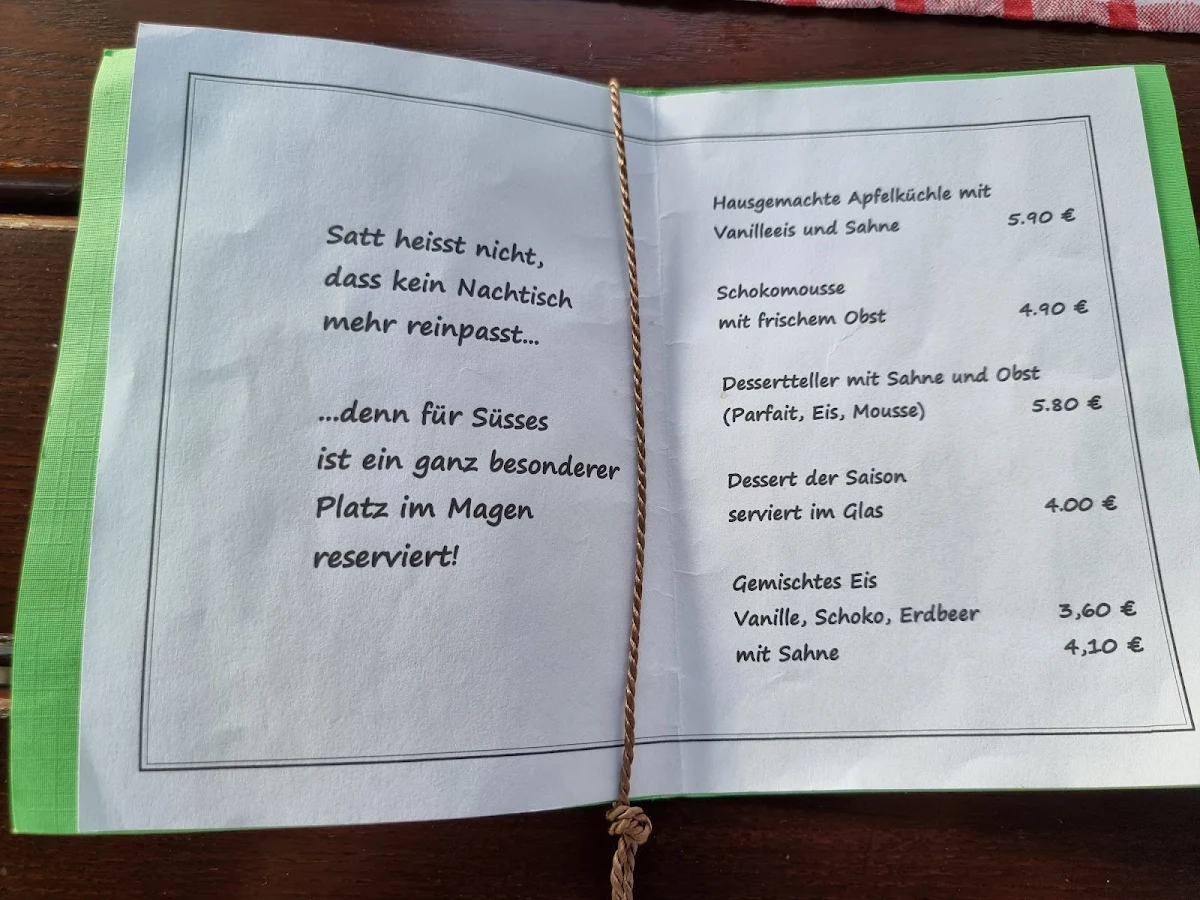 Satt heisst nicht,
dass kein Nachtisch
mehr reinpasst...
...denn für Süsses
ist ein ganz besonderer
Platz im Magen
reserviert!
Hausgemachte Apfelküchle mit
Vanilleeis und Sahne 5.90 €
Schokomousse
mit frischem Obst 4.90 €
Dessertteller mit Sahne und Obst
(Parfait, Eis, Mousse) 5.80 €
Dessert der Saison
serviert im Glas 4.00 €
Gemischtes Eis
Vanille, Schoko, Erdbeer 3,60 €
mit Sahne 4,10 €